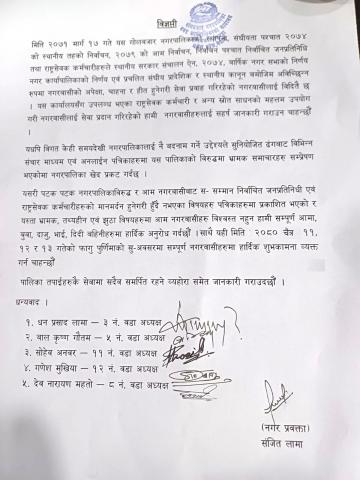 विज्ञप्ती
मिति २०७१ मार्ग १७ गते यस गोलबजार नगरपालिकाको स्थापना, संघीयता पश्चात २०७४
को स्थानीय तहको निर्वाचन, २०७९ को आम निर्वाचन, निर्वाचन पश्चात निर्वाचित जनप्रतिनिधि
तथा राष्ट्रसेवक कर्मचारीहरुले स्थानीय सरकार संचालन ऐन, २०७४, वार्षिक नगर सभाको निर्णय
नगर कार्यपालिकाको निर्णय एवं प्रचलित संघीय प्रादेशिक र स्थानीय कानून बमोजिम अविच्छिन्न
रुपमा नगरवासीको अपेक्षा, चाहना र हीत हुनेगरी सेवा प्रवाह गरिरहेको नगरवासीलाई विदितै छ
। यस कार्यालयसँग उपलब्ध भएका राष्ट्रसेवक कर्मचारी र अन्य स्रोत साधनको महत्तम उपयोग
गरी नगरवासीलाई सेवा प्रदान गरिरहेको हामी नगरवासीहरुलाई सहर्ष जानकारी गराउन चाहन्छौं
।
यद्यपि विगत केही समयदेखी नगरपालिकालाई नै बदनाम गर्ने उद्देश्यले सुनियोजित ढंगबाट विभिन्न
संचार माध्यम एवं अनलाईन पत्रिकाहरुमा यस पालिकाको विरुद्धमा भ्रामक समाचारहरु सम्प्रेषण
भएकोमा नगरपालिका खेद प्रकट गर्दछ ।
यसरी पटक पटक नगरपालिकाविरुद्ध र आम नगरवासीबाट स- सम्मान निर्वाचित जनप्रतिनिधी एवं
राष्ट्रसेवक कर्मचारीहरुको मानमर्दन हुनेगरी हुँदै नभएका विषयहरु पत्रिकाहरुमा प्रकाशित भएको र
यस्ता भ्रामक, तथ्यहीन एवं झुठा विषयहरुमा आम नगरवासीहरु विश्वस्त नहुन हामी सम्पूर्ण आमा,
बुवा, दाजु, भाई, दिदी वहिनीहरुमा हार्दिक अनुरोध गर्दछौं ।साथै यही मिति २०८० चैत्र ११,
१२ र १३ गतेको फागु पुर्णिमाको सु-अवसरमा सम्पूर्ण नगरवासीहरुमा हार्दिक शुभकामना व्यक्त
गर्न चाहन्छौं
पालिका तपाईहरुकै सेवामा सदैव समर्पित रहने व्यहोरा समेत जानकारी गराउदछौं ।
धन्यवाद ।
१. धन प्रसाद लामा – ३ नं. वडा अध्यक्ष
२. बाल कृष्ण गौतम – ५ नं. वडा अध्यक्ष
३. सोहेब अनवर – ११ नं. वडा अध्यक्ष
४. गणेश मुखिया – १२ नं. वडा अध्यक्ष
५. देव नारायण महतो – ८ नं. वडा अध्यक्ष
(नगर प्रवक्ता)
संजित लामा